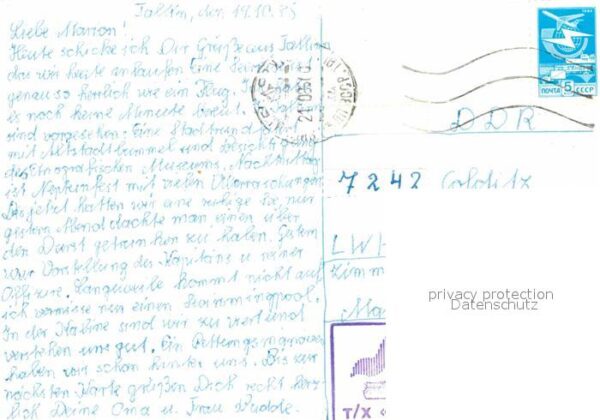 Tallin, den 19.10.85
Liebe Marion!
Heute schicke ich Dir Grüße aus Tallin
das wir heute anlaufen. Eine Seereise
genauso herrlich wie ein Flug.
es noch keine Minute bereut.
sind vorgesehen: Eine Stadtrundfahrt
mit Altstadtbummel und Besichtig.
des Etnografischen Museums. Nachmittag
ist Neptunfest mit vielen Überraschungen
Bis jetzt hatten wir eine ruhige See, nur
gestern Abend dachte man einen über
den Durst getrunken zu haben. Gestern
war Vorstellung des Kapitäns u. seiner
Offiziere. Langeweile kommt nicht auf
ich vermisse nur einen Swimmingpool.
In der Kabine sind wir zu viert und
verstehen uns gut. Ein Rettungsmanöver
haben wir schon hinter uns. Bis zur
nächsten Karte grüßen Dich recht herz
lich Deine Oma u. Frau
ПОЧТА 5 СССР
DDR
7242 Colditz
LWH
Zimm
Ma
privacy protection
Datenschutz
Т/Х «